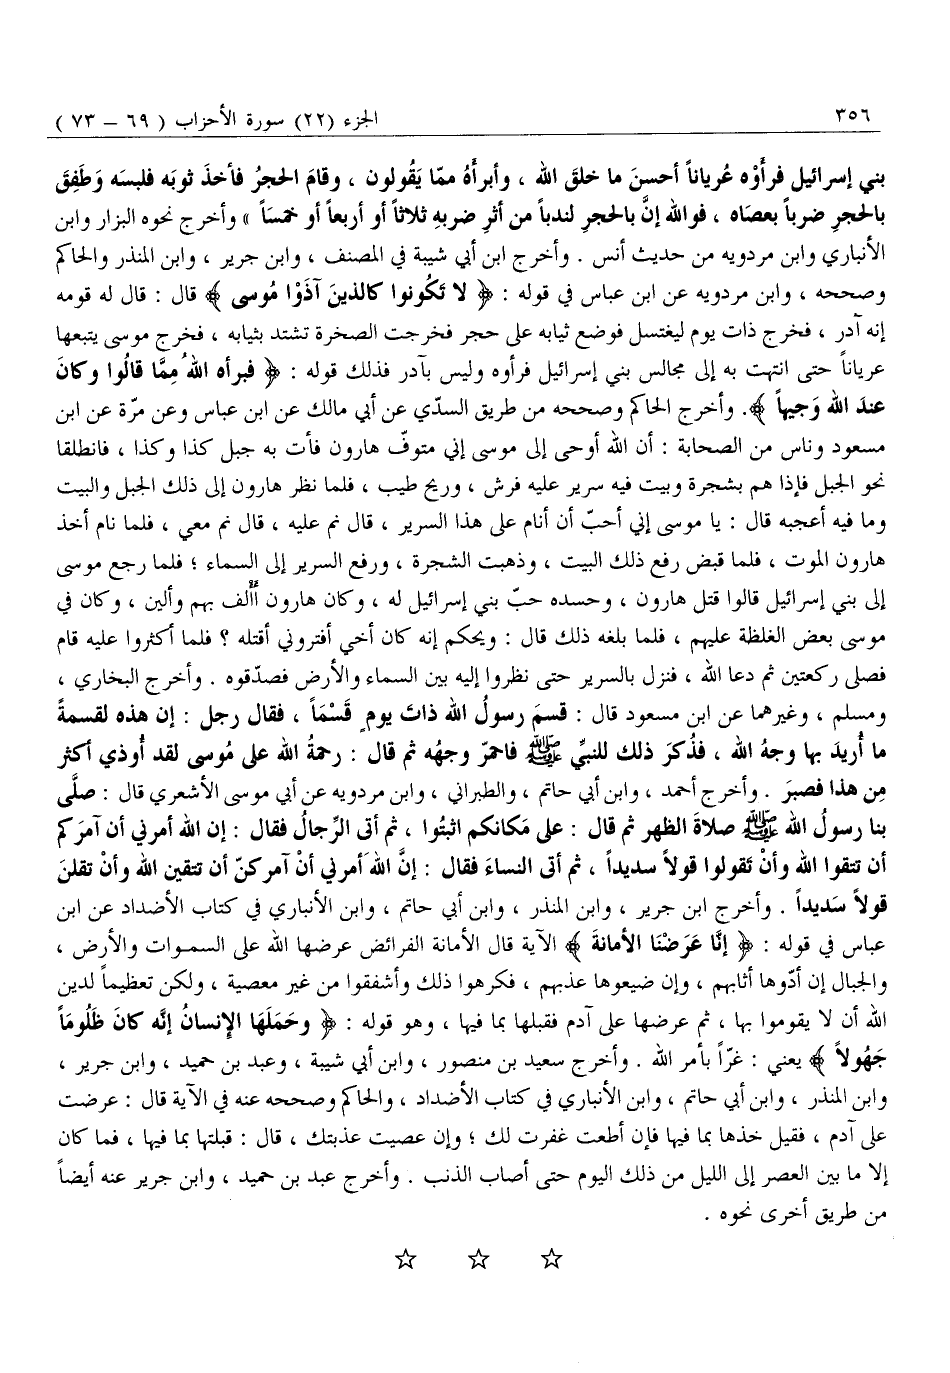 ٣٥٦ الجزء (٢٢) سورة الأحزاب ( ٦٩ – ٧٣ )
بني إسرائيل فرأَوْه عُرياناً أحسنَ ما خلقَ الله ، وأبرأَهُ ممّا يَقُولون ، وقامَ الحجرُ فأخذَ ثوبَه فلبسَه وَطَفِقَ
بالحجرِ ضرباً بعصَاه ، فوالله إنَّ بالحجرِ لندباً من أثرِ ضربهِ ثلاثاً أو أربعاً أو خمسَاً » وأخرج نحوه البزار وابن
الأنباري وابن مردويه من حديث أنس . وأخرج ابن أبي شيبة في المصنف ، وابن جرير ، وابن المنذر والحاكم
وصححه ، وابن مردويه عن ابن عباس في قوله : ﴿ لا تَكُونوا كالذينَ آذَوْا مُوسى ﴾ قال : قال له قومه
إنه آدر ، فخرج ذات يوم ليغتسل فوضع ثيابه على حجر فخرجت الصخرة تشتد بثيابه ، فخرج موسى يتبعها
عرياناً حتى انتهت به إلى مجالس بني إسرائيل فرأوه وليس بآدر فذلك قوله : ﴿ فبرأه اللهُ مِمَّا قالُوا وكانَ
عندَ الله وَجيهاً ﴾. وأخرج الحاكم وصححه من طريق السدّي عن أبي مالك عن ابن عباس وعن مرّة عن ابن
مسعود وناس من الصحابة : أن الله أوحى إلى موسى إني متوفّ هارون فأت به جبل كذا وكذا ، فانطلقا
نحو الجبل فإذا هم بشجرة وبيت فيه سرير عليه فرش ، وريح طيب ، فلما نظر هارون إلى ذلك الجبل والبيت
وما فيه أعجبه قال : يا موسى إني أحبّ أن أنام على هذا السرير ، قال نم عليه ، قال نم معي ، فلما نام أخذ
هارون الموت ، فلما قبض رفع ذلك البيت ، وذهبت الشجرة ، ورفع السرير إلى السماء ؛ فلما رجع موسى
إلى بني إسرائيل قالوا قتل هارون ، وحسده حبّ بني إسرائيل له ، وكان هارون أألف بهم وألين ، وكان في
موسى بعض الغلظة عليهم ، فلما بلغه ذلك قال : ويحكم إنه كان أخي أفتروني أقتله ؟ فلما أكثروا عليه قام
فصلى ركعتين ثم دعا الله ، فنزل بالسرير حتى نظروا إليه بين السماء والأرض فصدّقوه . وأخرج البخاري ،
ومسلم ، وغيرهما عن ابن مسعود قال : قسمَ رسولُ الله ذاتَ يومٍ قَسْمَاً ، فقال رجل : إن هذه لقسمةً
ما أُريدَ بها وجهُ الله ، فذُكرَ ذلك للنبيِّ ﷺ فاحمرّ وجهُه ثم قال : رحمةُ الله على مُوسى لقد أُوذي أكثر
مِن هذا فصبرَ . وأخرج أحمد ، وابن أبي حاتم ، والطبراني ، وابن مردويه عن أبي موسى الأشعري قال : صلَّى
بنا رسولُ الله ﷺ صلاةَ الظهر ثم قال : على مَكانكم اثبتُوا ، ثم أتى الرِّجالُ فقال : إن الله أمرني أن آمرَكم
أن تتقوا الله وأنْ تَقولوا قولاً سديداً ، ثم أتى النساءَ فقال : إنَّ اللهَ أمرني أنْ آمركنّ أن تتقين الله وأنْ تقلنَ
قولاً سَديداً . وأخرج ابن جرير ، وابن المنذر ، وابن أبي حاتم ، وابن الأنباري في كتاب الأضداد عن ابن
عباس في قوله : ﴿ إنَّا عَرَضْنَا الأمانةَ ﴾ الآية قال الأمانة الفرائض عرضها الله على السموات والأرض ،
والجبال إن أدّوها أثابهم ، وإن ضيعوها عذبهم ، فكرهوا ذلك وأشفقوا من غير معصية ، ولكن تعظيماً لدين
الله أن لا يقوموا بها ، ثم عرضها على آدم فقبلها بما فيها ، وهو قوله : ﴿ وحَمَلَهَا الإنسانُ إنَّه كانَ ظَلُومَاً
جَهُولاً ﴾ يعني : غرّاً بأمر الله . وأخرج سعيد بن منصور ، وابن أبي شيبة ، وعبد بن حميد ، وابن جرير ،
وابن المنذر ، وابن أبي حاتم ، وابن الأنباري في كتاب الأضداد ، والحاكم وصححه عنه في الآية قال : عرضت
على آدم ، فقيل خذها بما فيها فإن أطعت غفرت لك ؛ وإن عصيت عذبتك ، قال : قبلتها بما فيها ، فما كان
إلا ما بين العصر إلى الليل من ذلك اليوم حتى أصاب الذنب . وأخرج عبد بن حميد ، وابن جرير عنه أيضاً
من طريق أخرى نحوه .
☆ ☆ ☆